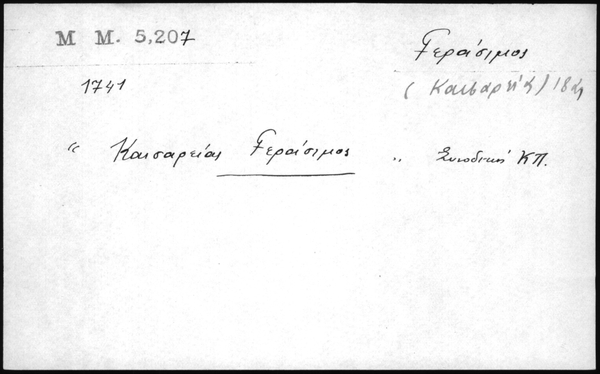 M M. 5,207
Γεράσιμος
1741
(Καισαρείας)
“ Καισαρείας Γεράσιμος „ Συνοδική ΚΠ.